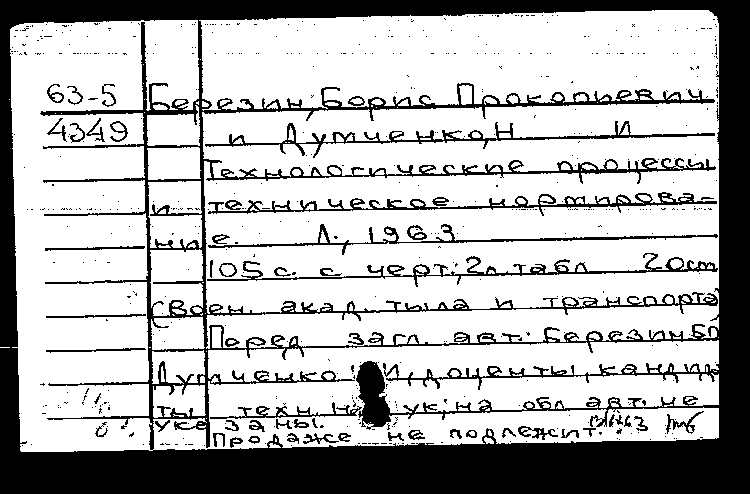 63-5 Березин, Борис Прокопиевич
4349 и Думченко, Н И
Технологические процессы
и техническое нормирова-
ние. Л., 1963
105 с. с черт.; 2 л. табл 20 см
(Воен. акад. тыла и транспорта
Перед загл. авт.: Березин Б П
Думченко И, доценты, кандида
ты техн. наук; на обл авт. не
указаны.
Продаже не подлежит.